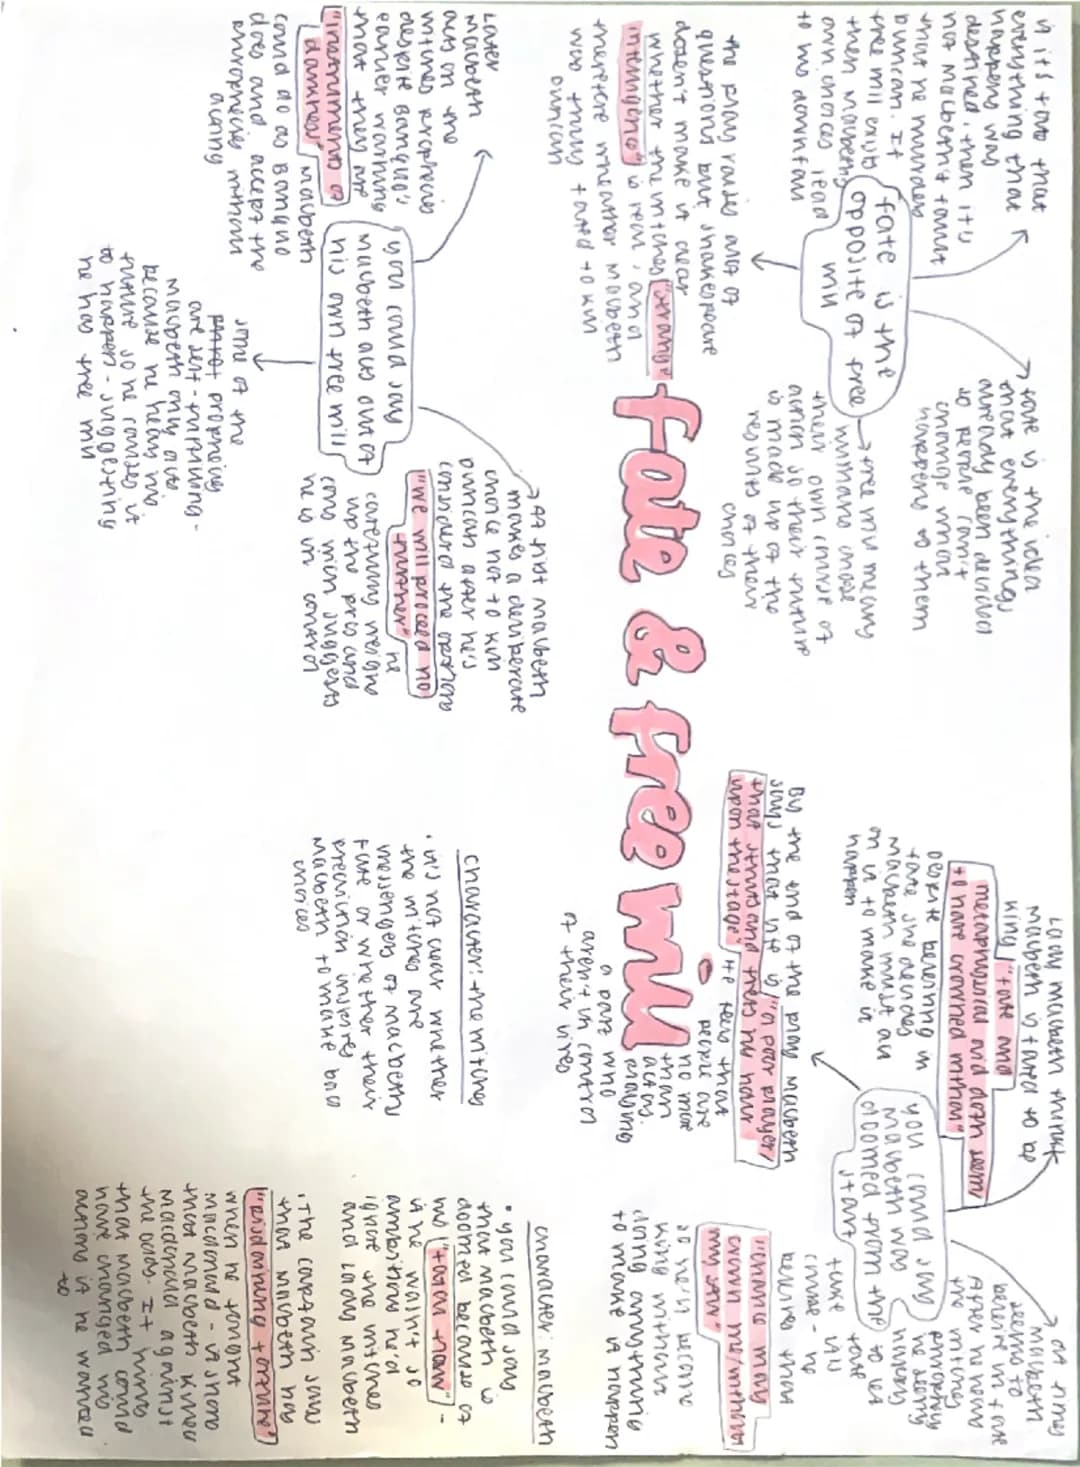 if it's true that
everything that
happens was
destined, then it's
not Macbeth's fault
that he murders
Duncan. If
free will exists
then Macbeth's
own choices lead
to his downfall
fate is the
opposite of free
will
fate is the idea
that everything's
already been decided
so people can't
change what
happens to them
free will means
humans choose
their own course of
action so their future
is made up of the
results of their
choices
the play raises a lot of
questions but Shakespeare
doesn't make it clear
whether the witches "strange
intelligence" is real, and
therefore whether Macbeth
was truly fated to kill
Duncan
Lady Macbeth thinks
Macbeth is fated to be
king "fate and
metaphysical aid doth seem
to have crowned withal"
Despite believing in
fate she decides
Macbeth must act
on it to make it
happen
you could say
Macbeth was
doomed from the
start
at times
Macbeth
seems to
believe in fate
After he hears
the witches
prophecy
he seems
happy
to let
fate
take its
course - he
believes that
"chance may
crown me/without
my stir"
so he'll become
king without
doing anything
to make it happen
By the end of the play Macbeth
says that life is "a poor player/
that struts and frets his hour
upon the stage" He feels that
people are
no more
than
actors
playing
a part who
aren't in control
of their lives
Fate & free will
Later
Macbeth
acts on the
witches prophecies
despite Banquo's
earlier warning
that they are
"instruments of
darkness" Macbeth
could do as Banquo
does and accept the
prophecies without
acting
you could say
Macbeth acts out of
his own free will
At first Macbeth
makes a deliberate
choice not to kill
Duncan after he's
considered the options
"we will proceed no
further" he
carefully weighs
up the pros and
cons which suggests
he is in control
some of the
prophecies
are self-fulfilling -
Macbeth only acts
because he hears his
future so he causes it
to happen - suggesting
he has free will
character: the witches
• it's not clear whether
the witches are
messengers of Macbeth's
fate or whether their
prediction inspires
Macbeth to make bad
choices
character: Macbeth
• you could say
that Macbeth is
doomed because of
his
if he wasn't so
ambitious he'd
ignore the witches
and Lady Macbeth
• The captain says
that Macbeth was
"disdaining fortune"
when he fought
Macdonald - it shows
that Macbeth knew
Macdonald against
the odds. It hints
that Macbeth could
have changed his
actions if he wanted
to